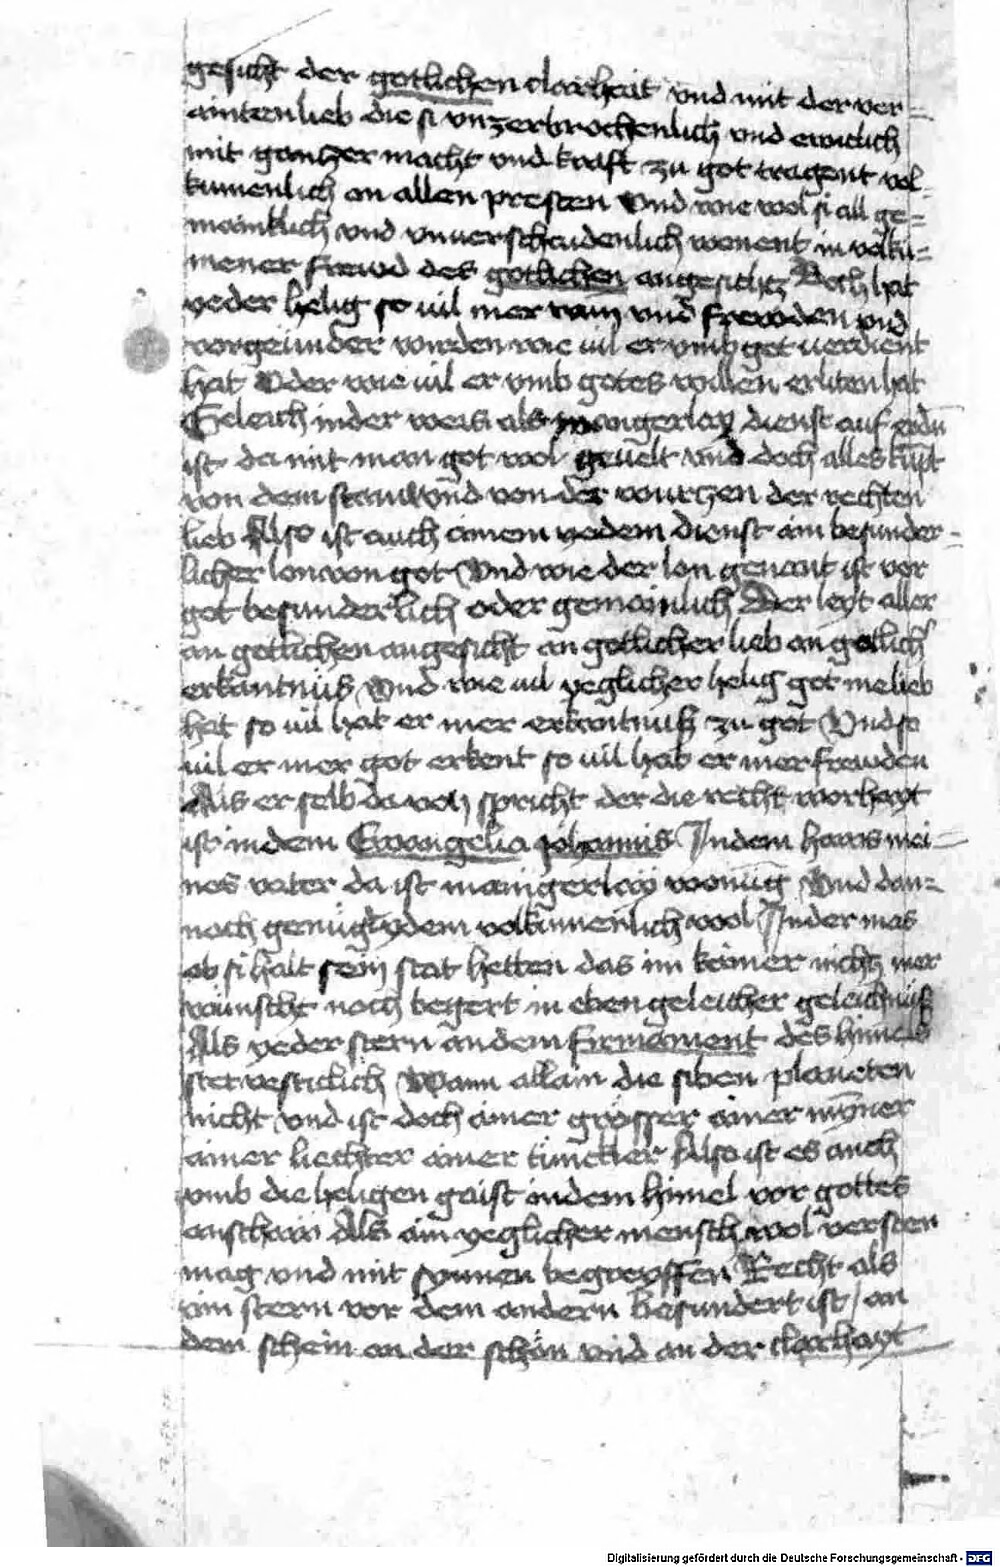 gesicht der gotlichen clarheit vnd mit der ver-
ainten lieb die si vnzerbrochenlich vnd ewiclich
mit gantzer macht vnd kraft zu got tragent vol-
kumenlich an allen presten Vnd wie wol si all ge-
mainklich vnd vnuerschaidenlich wonent in volku-
mener frewd des gotlichen angesichtz Doch hat
yeder helig so uil mer vnd frewden vnd
wirden wie uil er vmb got uerdient
hat Oder wie uil er vmb gotes willen erliten hat
Geleich in der weis als mangerlay dienst auf erdn
ist da mit man got wol geuelt vnd doch alles kumt
von dem stam vnd von der wurtzen der rechten
lieb Also ist auch ainem yedem dienst ain besunder-
licher lon von got Vnd wie der lon genant ist vor
got besunderlich oder gemainlich Der leyt aller
an gotlichen angesicht an gotlicher lieb an gotlich
erkantnus Vnd wie uil yeglicher helig got me lieb
hat so uil hat er mer erkantnuss zu got Vnd so
uil er mer got erkent so uil hat er mer frewden
Als er selb da von spricht der die recht warhayt
ist in dem Ewangelia johannis In dem haws mei-
nes vater da ist maingerlay wonung Vnd dan-
noch genugt ydem volkumenlich wol In der mas
ob si halt sein stat hetten das im keiner nichtz mer
wunscht noch begert in eben geleicher geleichnuss
Als yeder stern an dem firmament des himels
stet vesticlich Wann allain die siben planeten
nicht vnd ist doch ainer grosser ainer mynner
ainer liechter ainer tunckler Also ist es auch
vmb die heligen geist in dem himel vor gottes
anschaun Als ain yeglicher mensch wol versten
mag vnd mit synnen begreyffen Recht als
ain stern vor dem andern besundert ist / an
dem schein an der schön vnd an der clarhayt
Digitalisierung gefördert durch die Deutsche Forschungsgemeinschaft - DFG